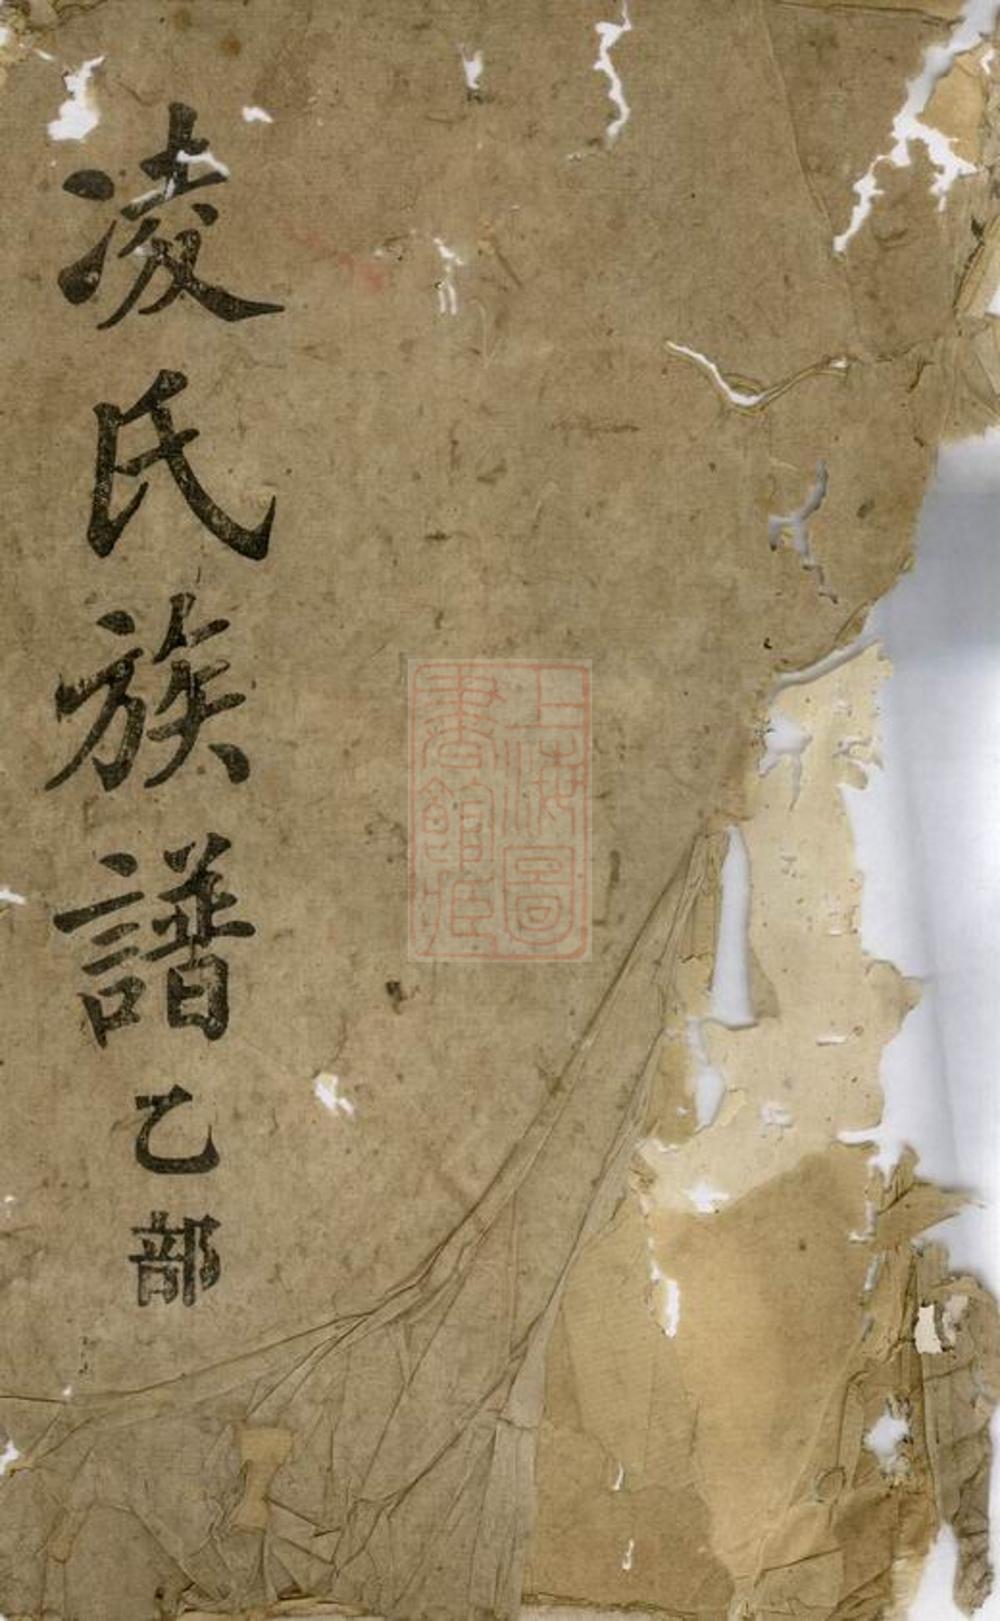 凌氏族譜乙部
上海圖
書館藏